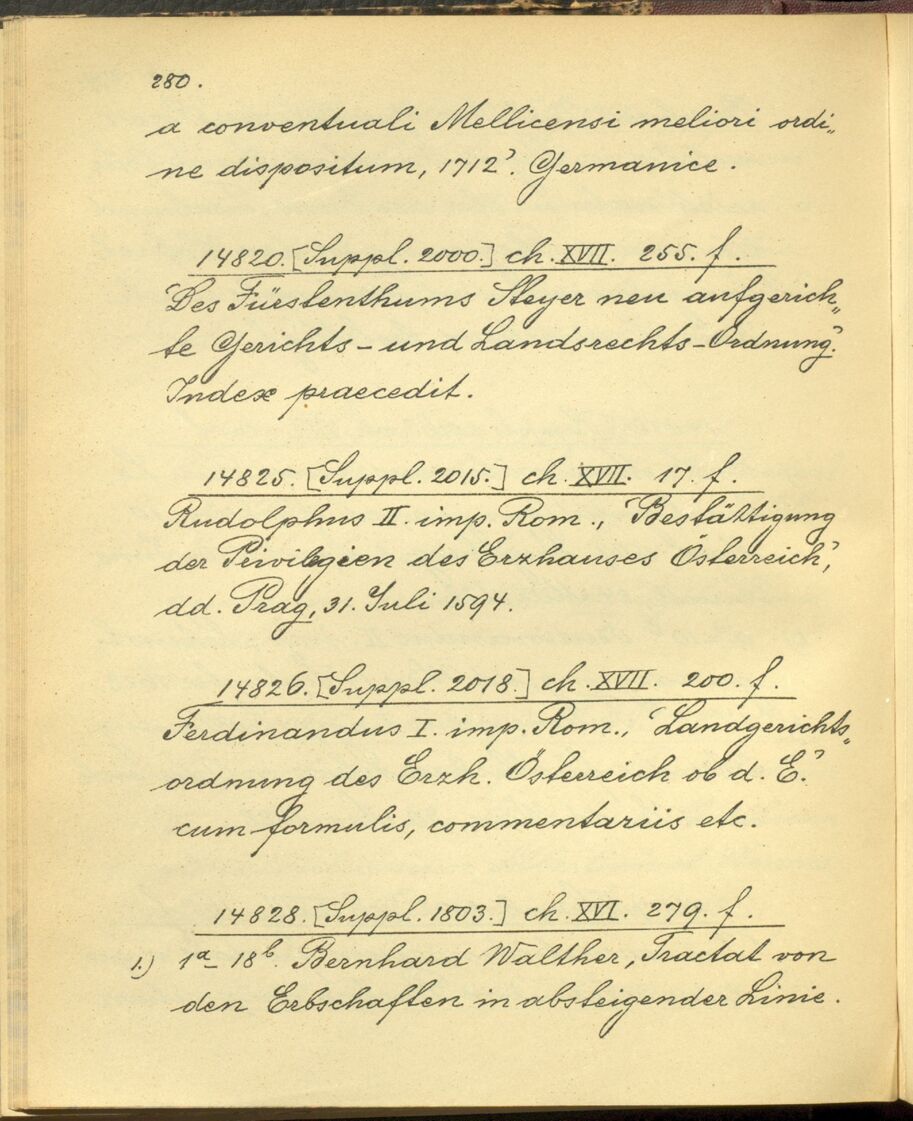 280.
a conventuali Mellicensi meliori ordi„
ne dispositum, 1712’. Germanice.
14820. [Suppl. 2000.] ch. XVII. 255. f.
‘Des Fürstenthums Steyer neu aufgerich„
te Gerichts - und Landsrechts-Ordnung’.
Index praecedit.
14825. [Suppl. 2015.] ch. XVII. 17. f.
Rudolphus II. imp. Rom., ‘Bestättigung
der Privilegien des Erzhauses Österreich’,
dd. Prag, 31. Juli 1594.
14826. [Suppl. 2018.] ch. XVII. 200. f.
Ferdinandus I. imp. Rom., ‘Landgerichts„
ordnung des Erzh. Österreich ob d. E.’
cum formulis, commentariis etc.
14828. [Suppl. 1803.] ch. XVI. 279. f.
1.) 1a - 18b. Bernhard Walther, Tractat von
den Erbschaften in absteigender Linie.